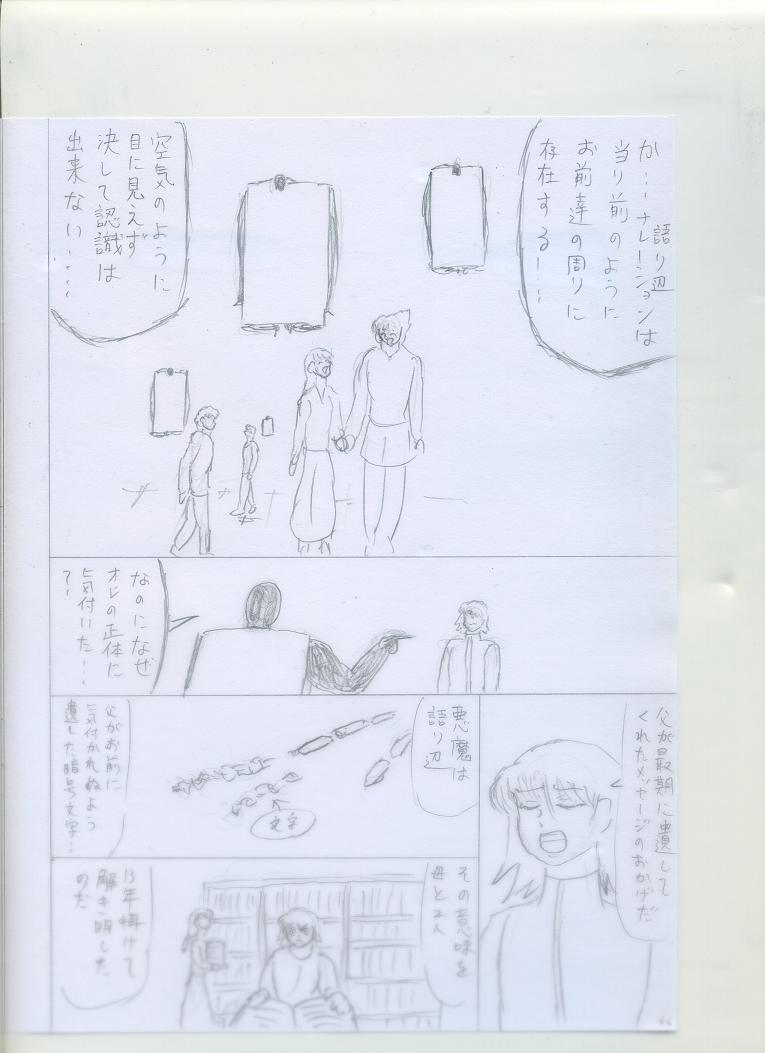 か…ナレーションは
語り辺
当り前のように
お前達の周りに
存在する!…
空気のように
目に見えず
決して認識は
出来ない……
なのになぜ
オレの正体に
気付いた!…
て~
父が最期に遺して
くれたメッセージのおかげだ
悪魔は
語り辺
文字
父がお前に
気付かれぬよう
遺した暗号文字…
その意味を
母と2人
13年掛けて
解き明した
のだ